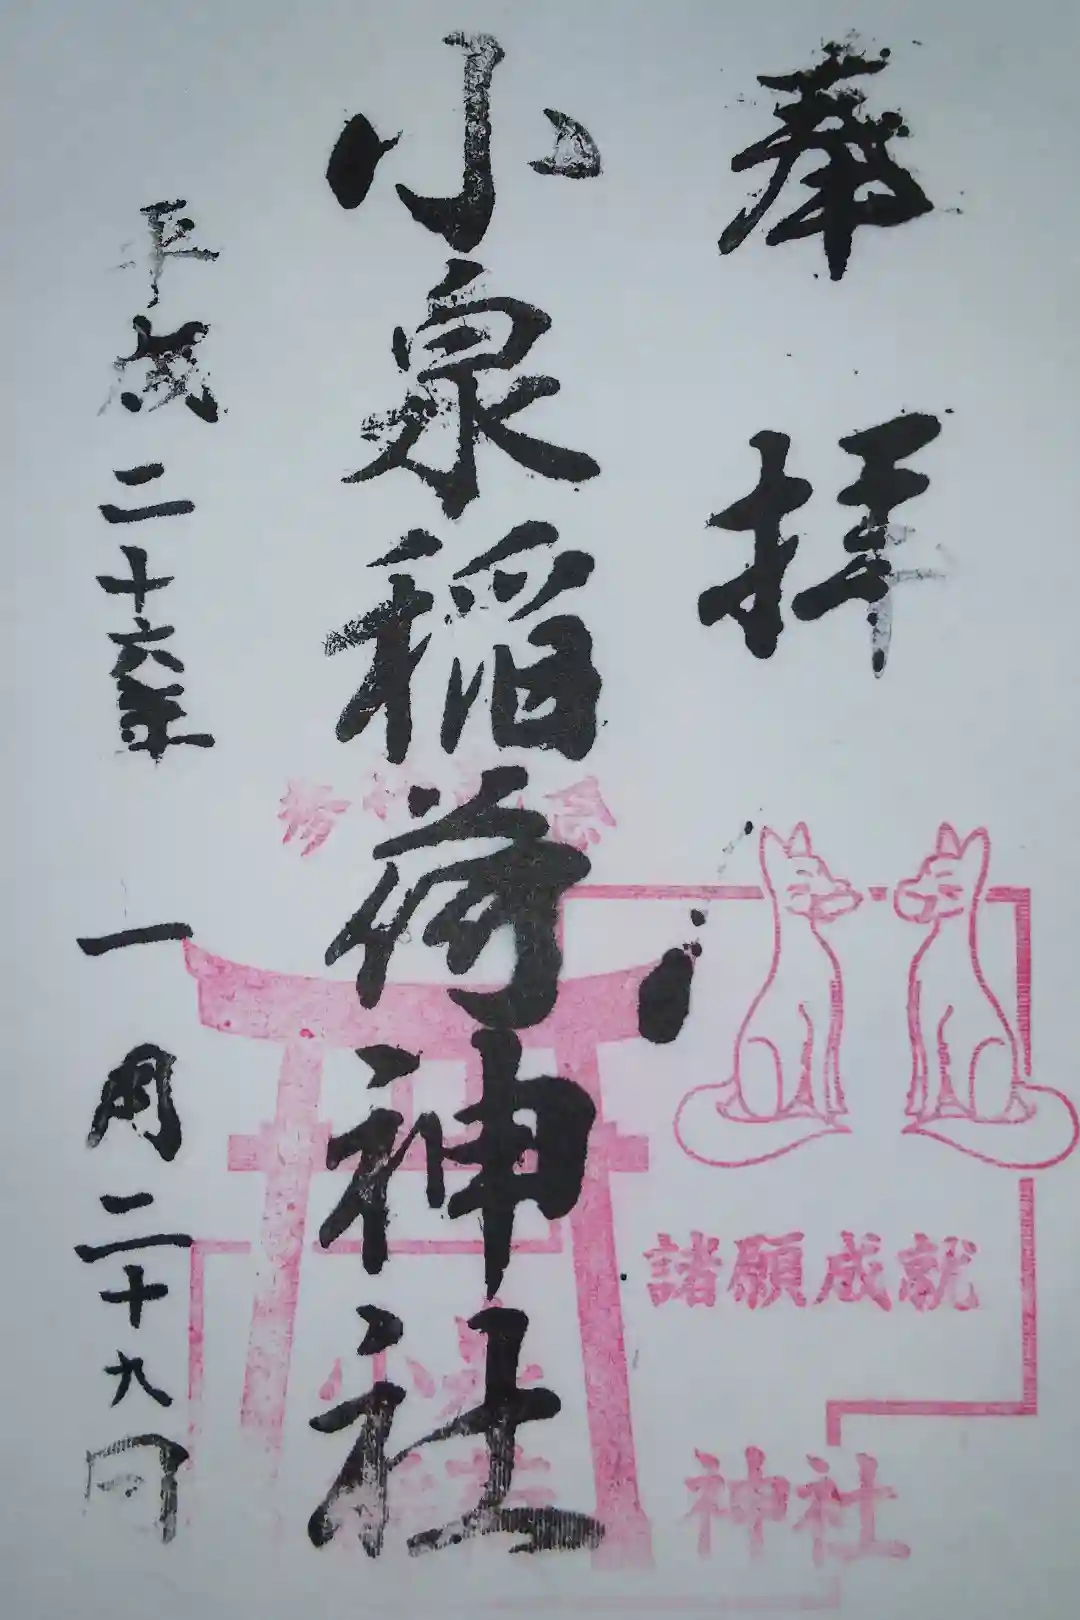 奉拝
小泉稲荷神社
平成二十六年一月二十九日
諸願成就
小泉
稲荷
神社